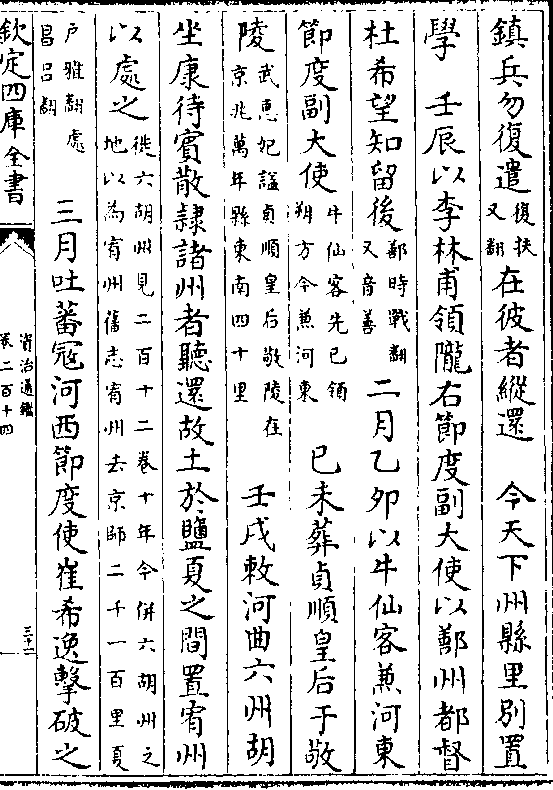 鎮兵勿復遣復扶又翻在彼者縱還　今天下州縣里别置
學　壬辰以李林甫領隴右節度副大使以鄯州都督
杜希望知留後鄯時戰翻又音善　二月乙夘以牛仙客兼河東
節度副大使牛仙客先已領朔方今兼河東　己未葬貞順皇后于敬
陵武惠妃謚貞順皇后敬陵在京兆萬年縣東南四十里　壬戌敕河曲六州胡
坐康待賓散隸諸州者聽還故土於鹽夏之間置宥州
以處之徙六胡州見二百十二卷十年今併六胡州之地以為宥州舊志宥州去京師二千一百里夏
户雅翻處昌吕翻　三月吐蕃冦河西節度使崔希逸擊破之
欽定四庫全書
資治通鑑
卷二百十四
三十一